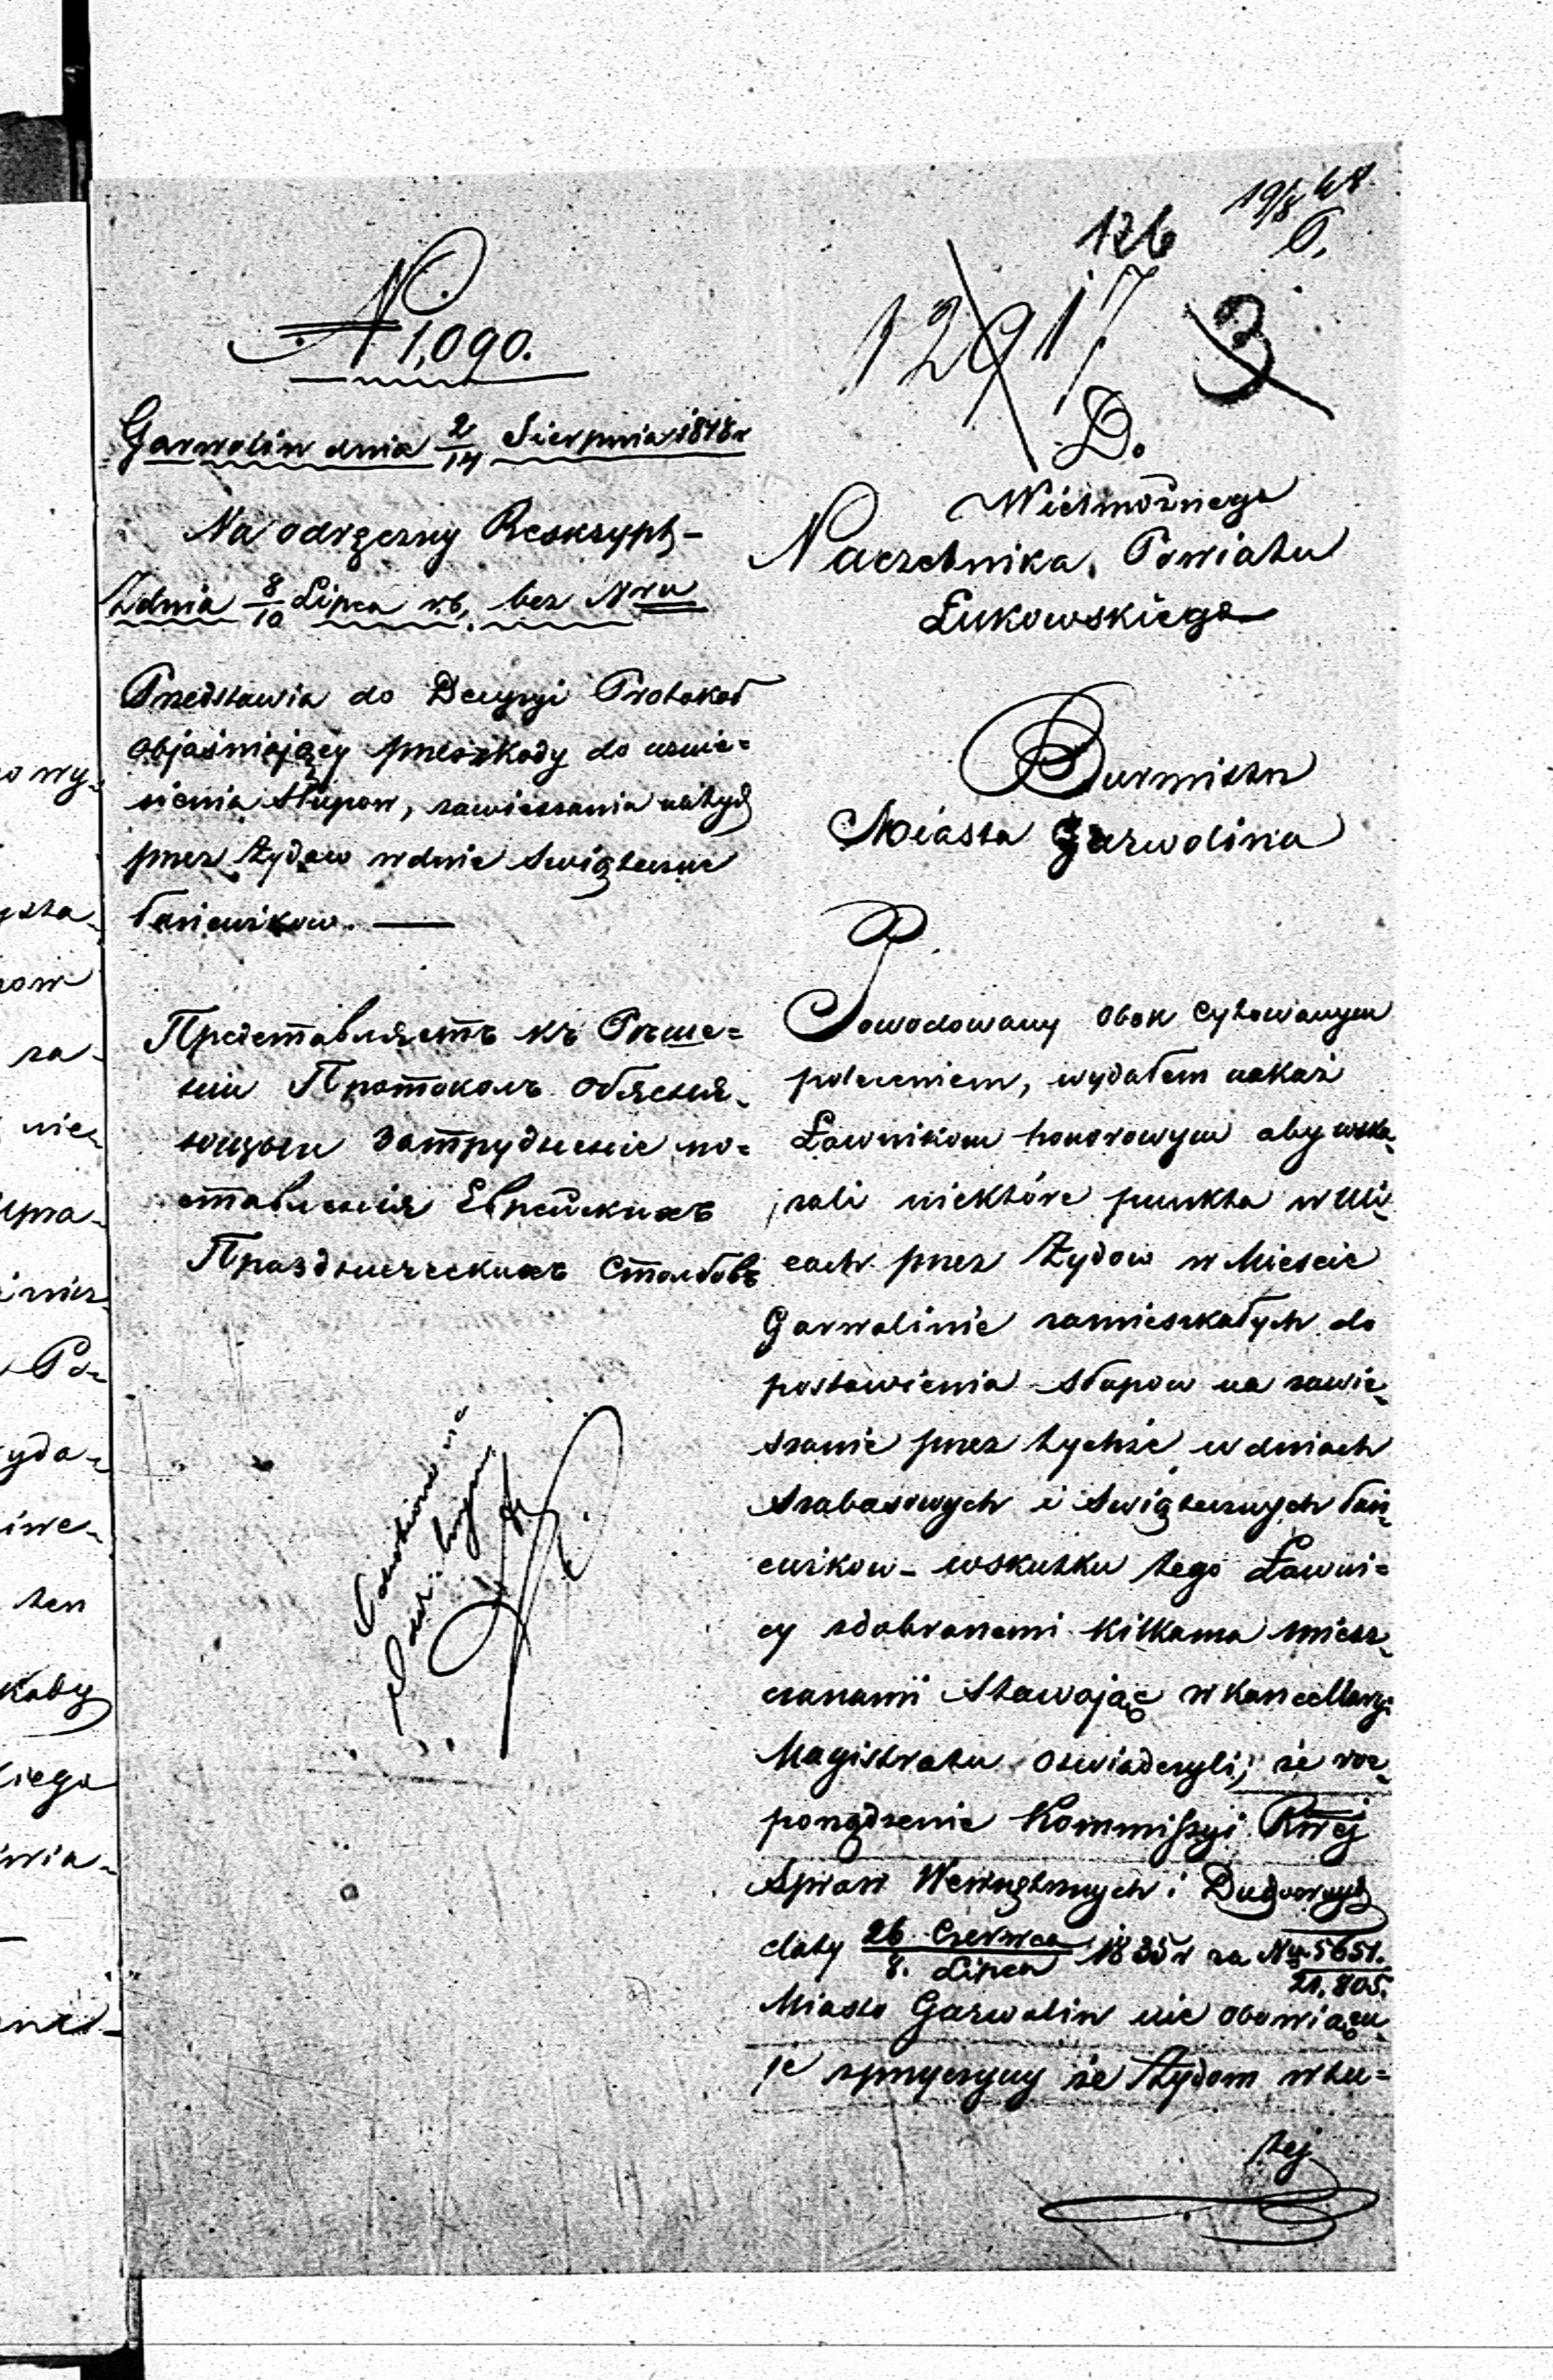 19/8 48
126
12917
3
D.
N 1,090.
Garwolin dnia 2/14 Sierpnia 1848 r
Na odręczny Reskrypt
Zdnia 8/10 Lipca r.b. bez Nru
Przedstawia do Decyzyi Protokoł
objaśniający przeszkody do wznie=
sienia słupow, zawieszania na tych
przez Żydow w dnie Swiąteczne
łancuszkow.
Представляетъ къ Реше=
нiю Протоколъ обяcня-
ющый Затрудненiе по=
ставленiя Еврейскихъ
Праздническихъ Столбовъ
Wielmożnego
Naczelnika Powiatu
Łukowskiego
Burmistrz
Miasta Garwolina
Powodowany obok cytowanym
poleceniem, wydałem nakaz
Ławnikom honorowym aby wska-
zali niektóre punkta w Uli
cach przez Żydow w Miescie
Garwolinie zamieszkałych do
postawienia słupow na zawie-
szanie przez tychże w dniach
Szabasowych i Swiątecznych łan-
cuszkow - wskutku tego Ławni=
cy zdobranemi kilkama miesz-
czanami stawając w Kancellaryi
Magistratu oswiadczyli, że roz-
porządzenie Kommissyi Rwej
Spraw Wewnętrznych i Duchownych
daty 26 Czerwca / 8. Lipca 1835 r za Nr 5651. / 21,805.
Miasto Garwolin nie obowiązu-
je zprzyczyny że Żydom w tu=
tej